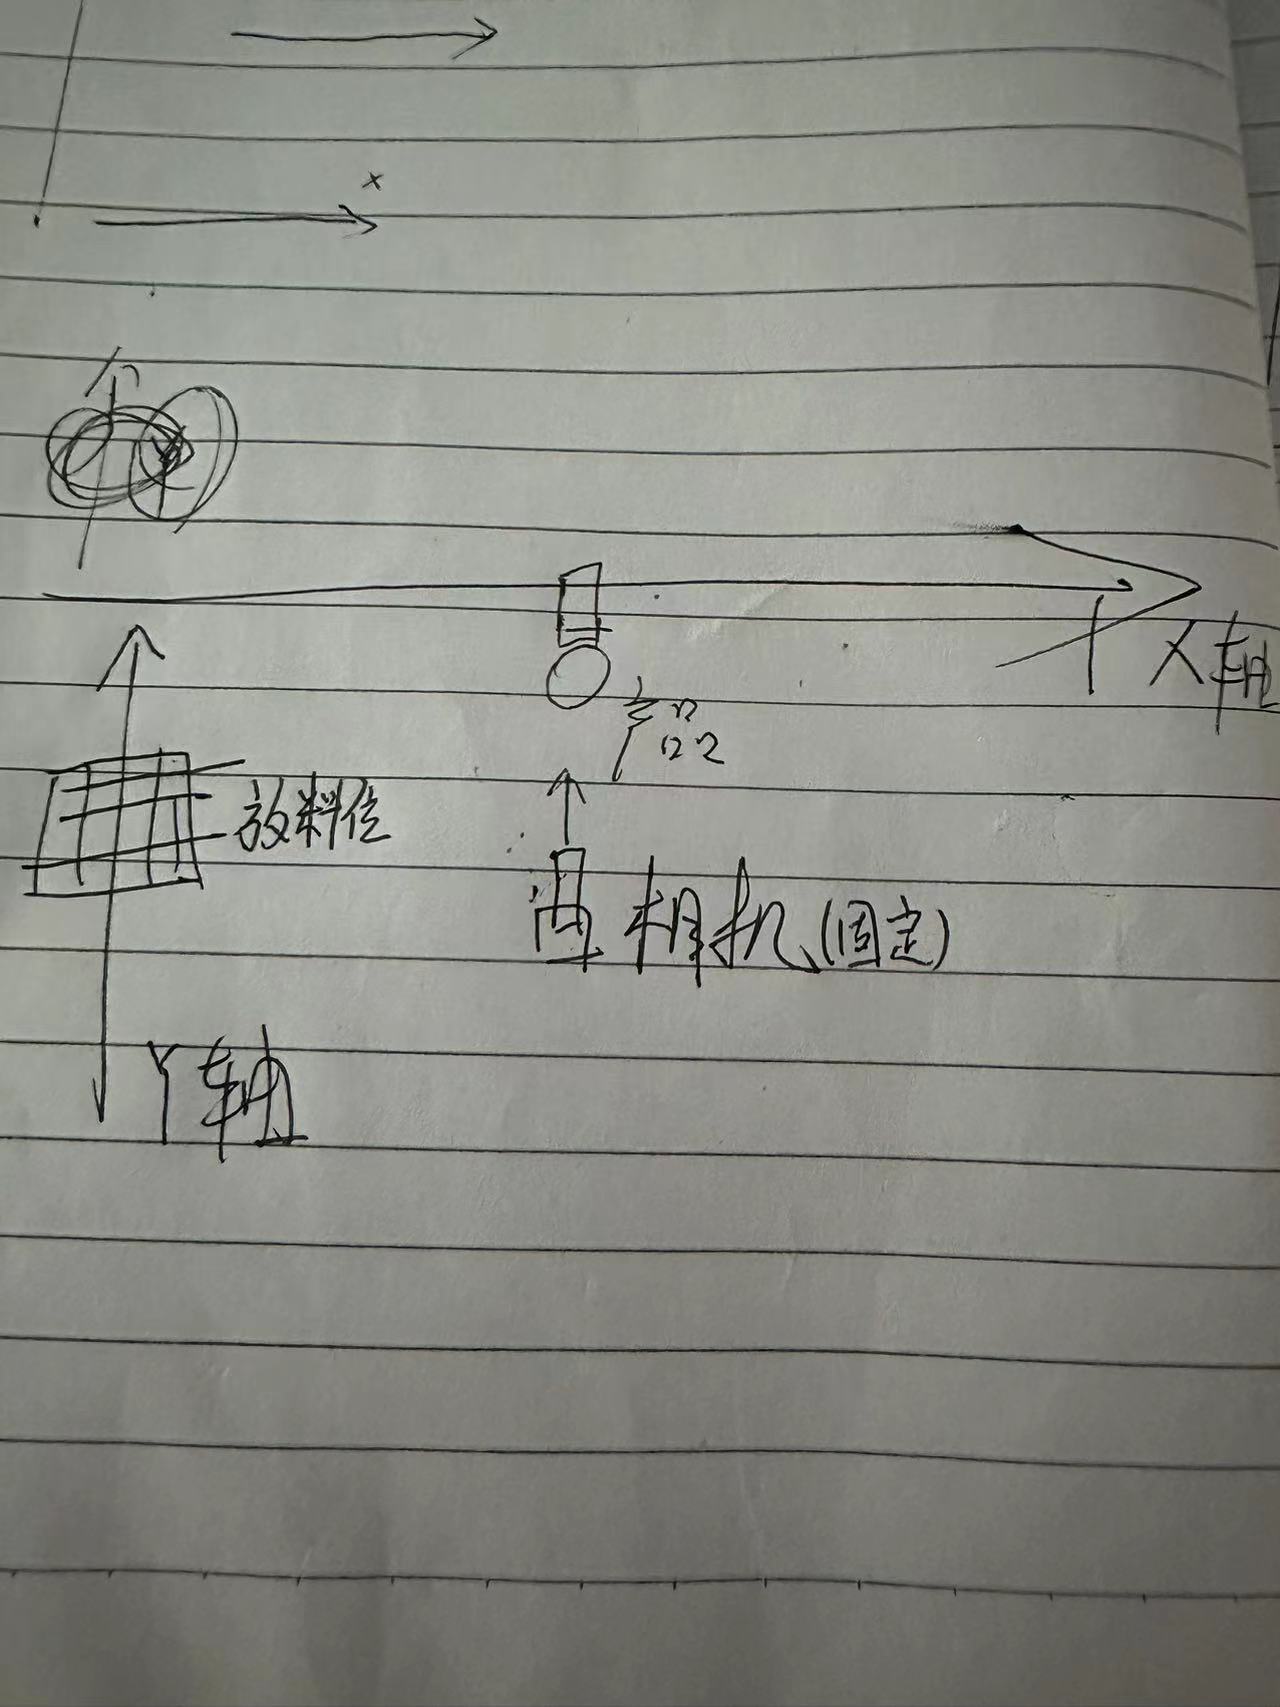 x
X轴
放料位
相机(固定)
Y轴